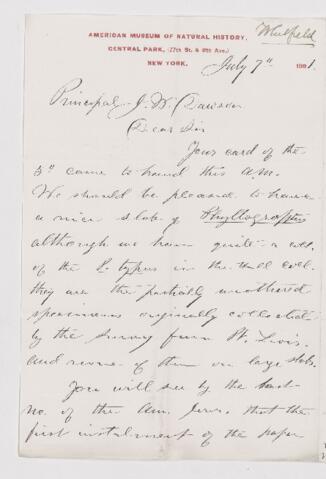 Whitfield
AMERICAN MUSEUM OF NATURAL HISTORY,
CENTRAL PARK, (77th St. & 8th Ave.)
NEW YORK, July 7th 1881.
Principal J. W. Dawson
Dear Sir
Your card of the
5th came to hand this A.M.
We should be pleased to have
a nice slab of Phyllograptus
although we have quite a coll.
of the types in the Hall coll.
they are the partially weathered
specimens originally collected
by the survey from Pt. Levis.
and none of them on large slabs.
You will see by the last
no. of the Am. Jour. that the
first instalment of the paper